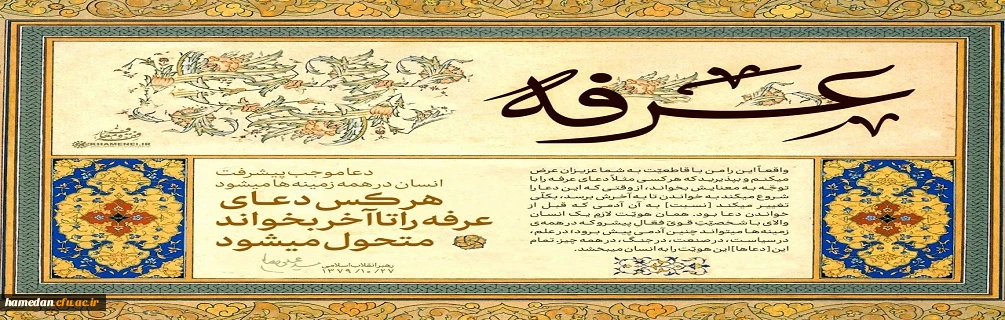 عرفه
KHAMENEI.IR
دعا موجب پیشرفت
انسان در همه زمینه‌ها میشود
هر کس دعـای
عرفه را تا آخر بخواند
متحول میشود
رهبر انقلاب اسلامی
۱۳۷۹/۱۰/۲۷
واقعاً این را من با قاطعیّت به شما عزیزان عرض
میکنم و بپذیرید که هر کسی مثلاً دعای عرفه را با
توجّه به معنایش بخواند، از وقتی که این دعا را
شروع میکند به خواندن تا به آخرش برسد، بکلّی
تغییر میکند [نسبت] به آن آدمی که قبل از
خواندن دعا بود. همان هویّت لازم یک انسان
والای با شخصیّت قویّ فعّال پیشرو که در همه‌ی
زمینه‌ها میتواند چنین آدمی پیش برود؛ در علم،
در سیاست، در صنعت، در جنگ، در همه چیز تمام
این [دعاها] این هویّت را به انسان میبخشد.
hamedan.cfu.ac.ir